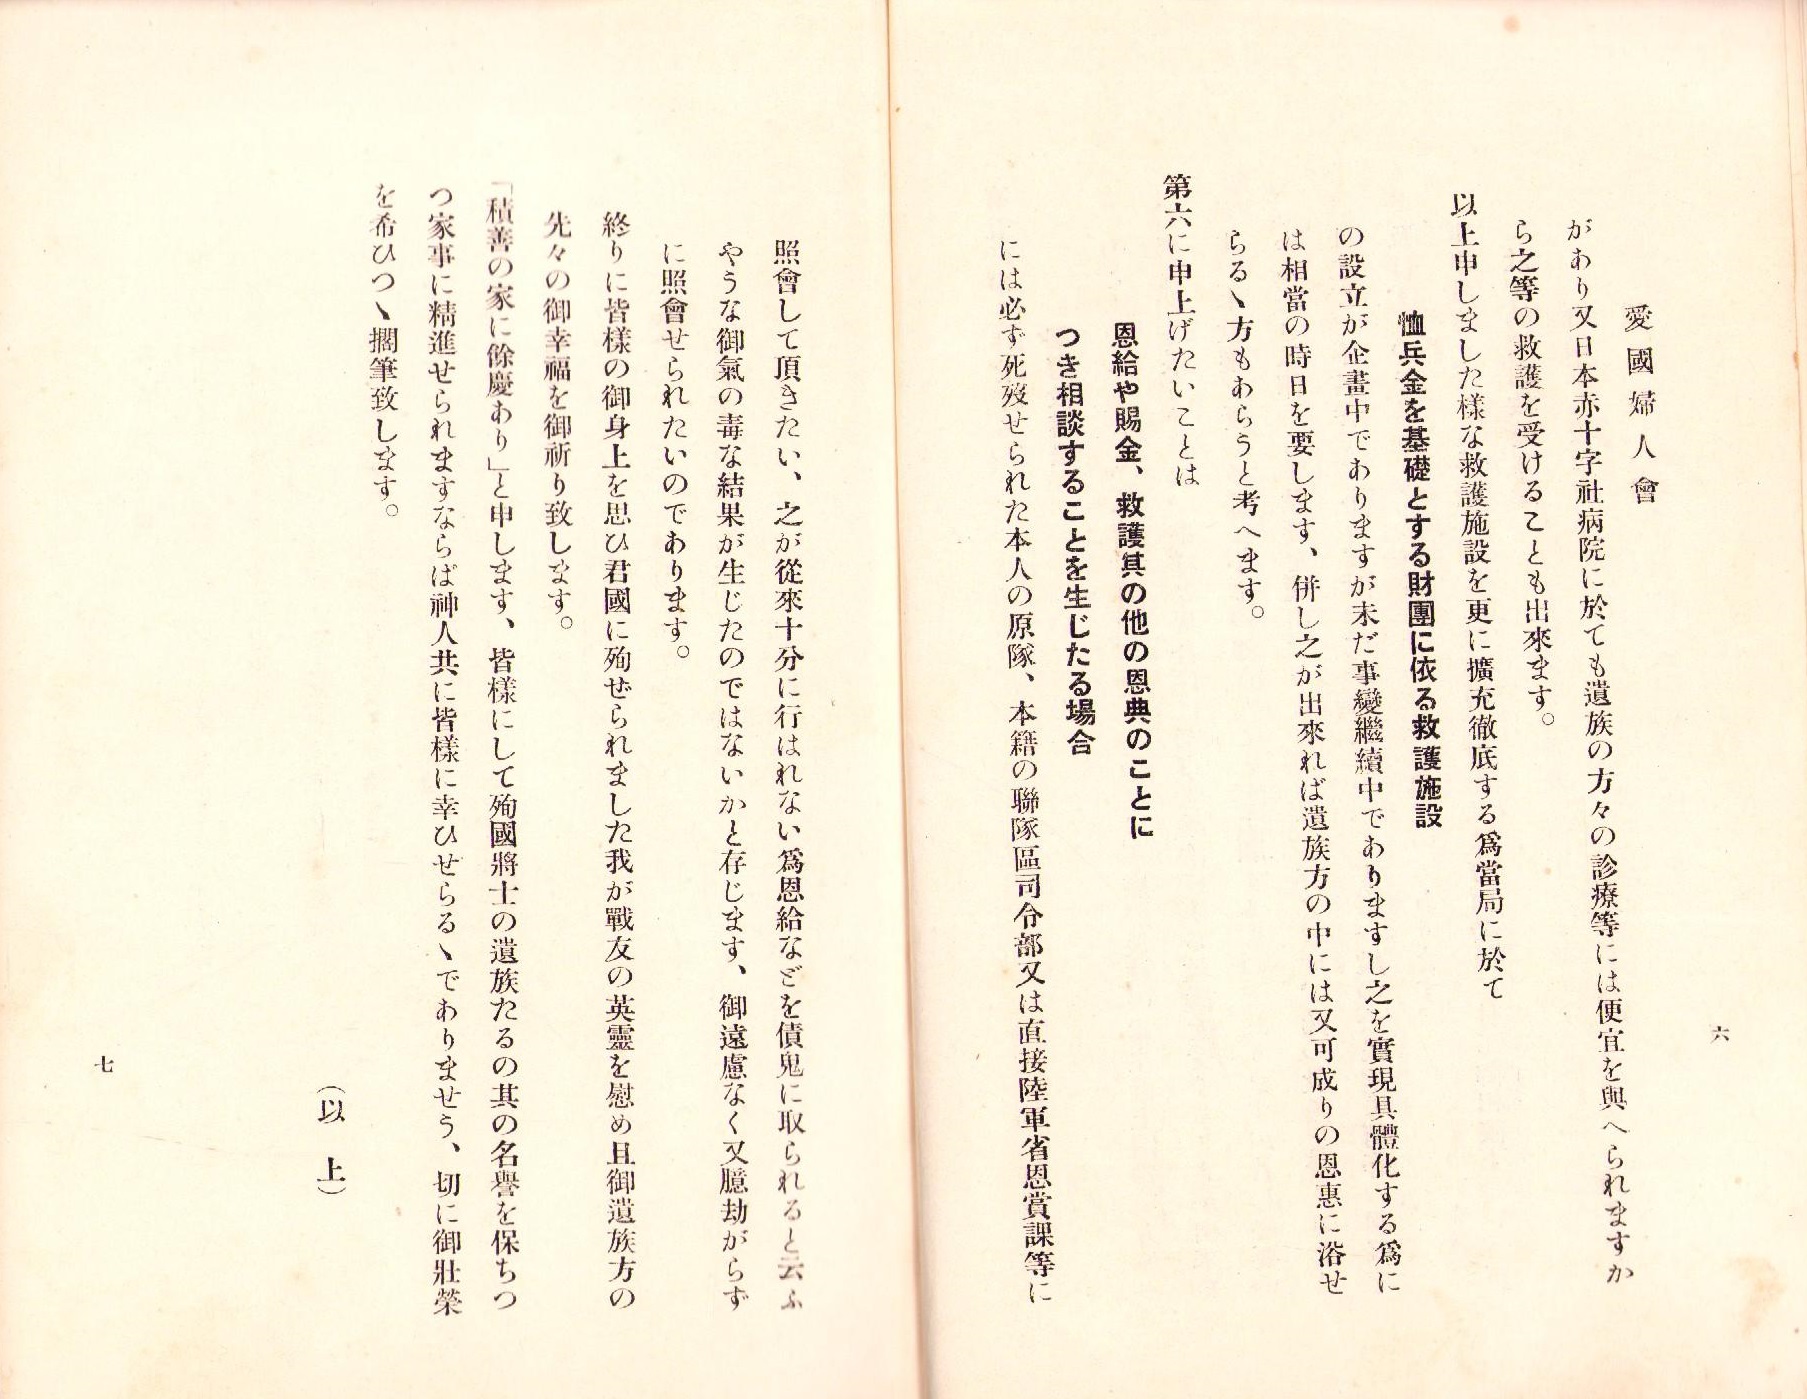 六
愛國婦人會
があり又日本赤十字社病院に於ても遺族の方々の診療等には便宜を與へられますか
ら之等の救護を受けることも出來ます。
以上申しました樣な救護施設を更に擴充徹底する爲當局に於て
恤兵金を基礎とする財團に依る救護施設
の設立が企畫中でありますが未だ事變繼續中でありますし之を實現具體化する爲に
は相當の時日を要します、併し之が出來れば遺族方の中には又可成りの恩惠に浴せ
らるゝ方もあらうと考へます。
第六に申上げたいことは
恩給や賜金、救護其の他の恩典のことに
つき相談することを生じたる場合
には必ず死歿せられた本人の原隊、本籍の聯隊區司令部又は直接陸軍省恩賞課等に
照會して頂きたい、之が從來十分に行はれない爲恩給などを債鬼に取られると云ふ
やうな御氣の毒な結果が生じたのではないかと存じます、御遠慮なく又臆劫がらず
に照會せられたいのであります。
終りに皆樣の御身上を思ひ君國に殉ぜられました我が戰友の英靈を慰め且御遺族方の
先々の御幸福を御祈り致します。
「積善の家に餘慶あり」と申します、皆樣にして殉國將士の遺族たるの其の名譽を保ちつ
つ家事に精進せられますならば神人共に皆樣に幸ひせらるゝでありませう、切に御壯榮
を希ひつゝ擱筆致します。
（以上）
七